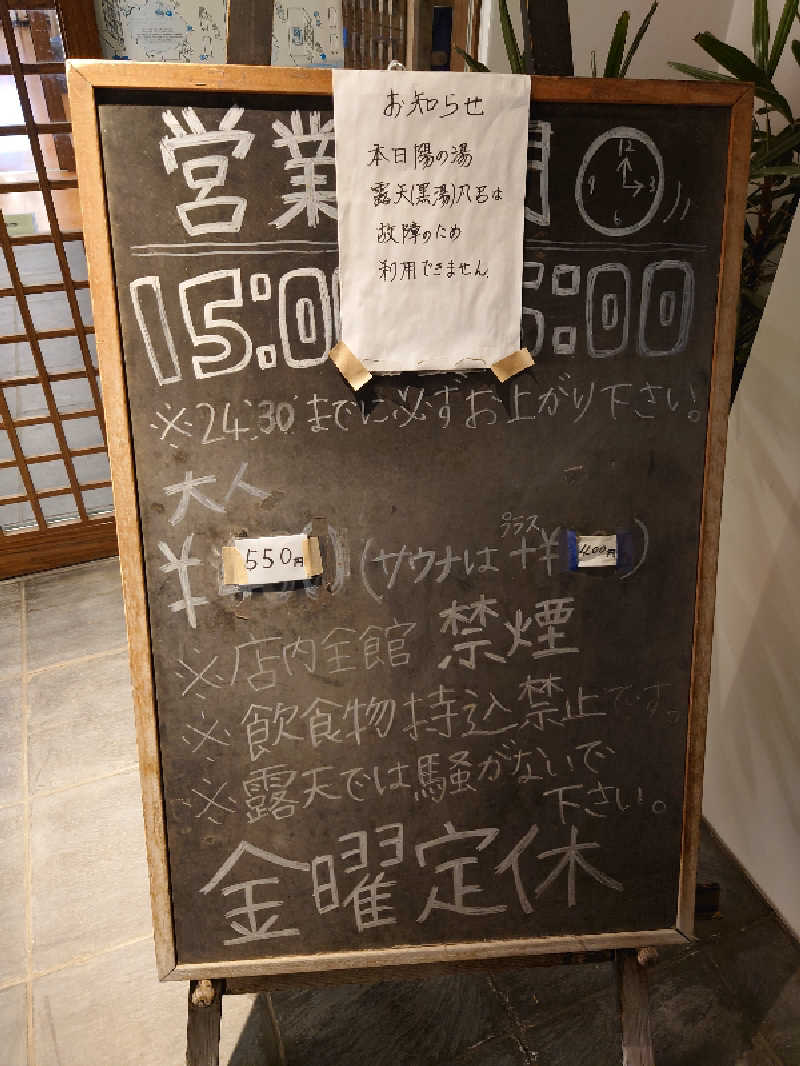 お知らせ
本日陽の湯
露天(黒湯)风呂は
故障のため
利用できません。
営業
12
3
6
9
15:0
5:00
※24:30までに必ずお上がり下さい。
大人
¥550円(サウナは+¥400円)
プラス
※店内全館禁煙
※飲食物持込禁止です。
※露天では騒がないで
下さい。
金曜定休